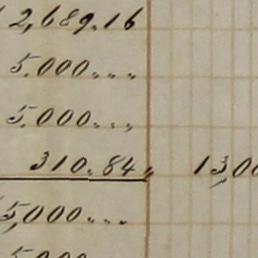 2,689.16
5.000,,,
5.000,,,
310.84,, 13,00
5,000,,,
5.000